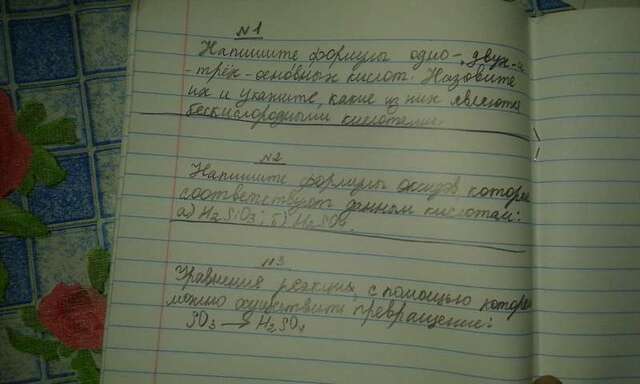 №1
Напишите формулы одно-, двух- и
-трёх-основных кислот. Назовите
их и укажите, какие из них являются
бескислородными кислотами.
№2
Напишите формулы оксидов которые
соответствуют данным кислотам:
а) H2SiO3; б) H2SO4.
№3
Уравнения реакции, с помощью которых
можно осуществить превращение:
SO3 → H2SO4